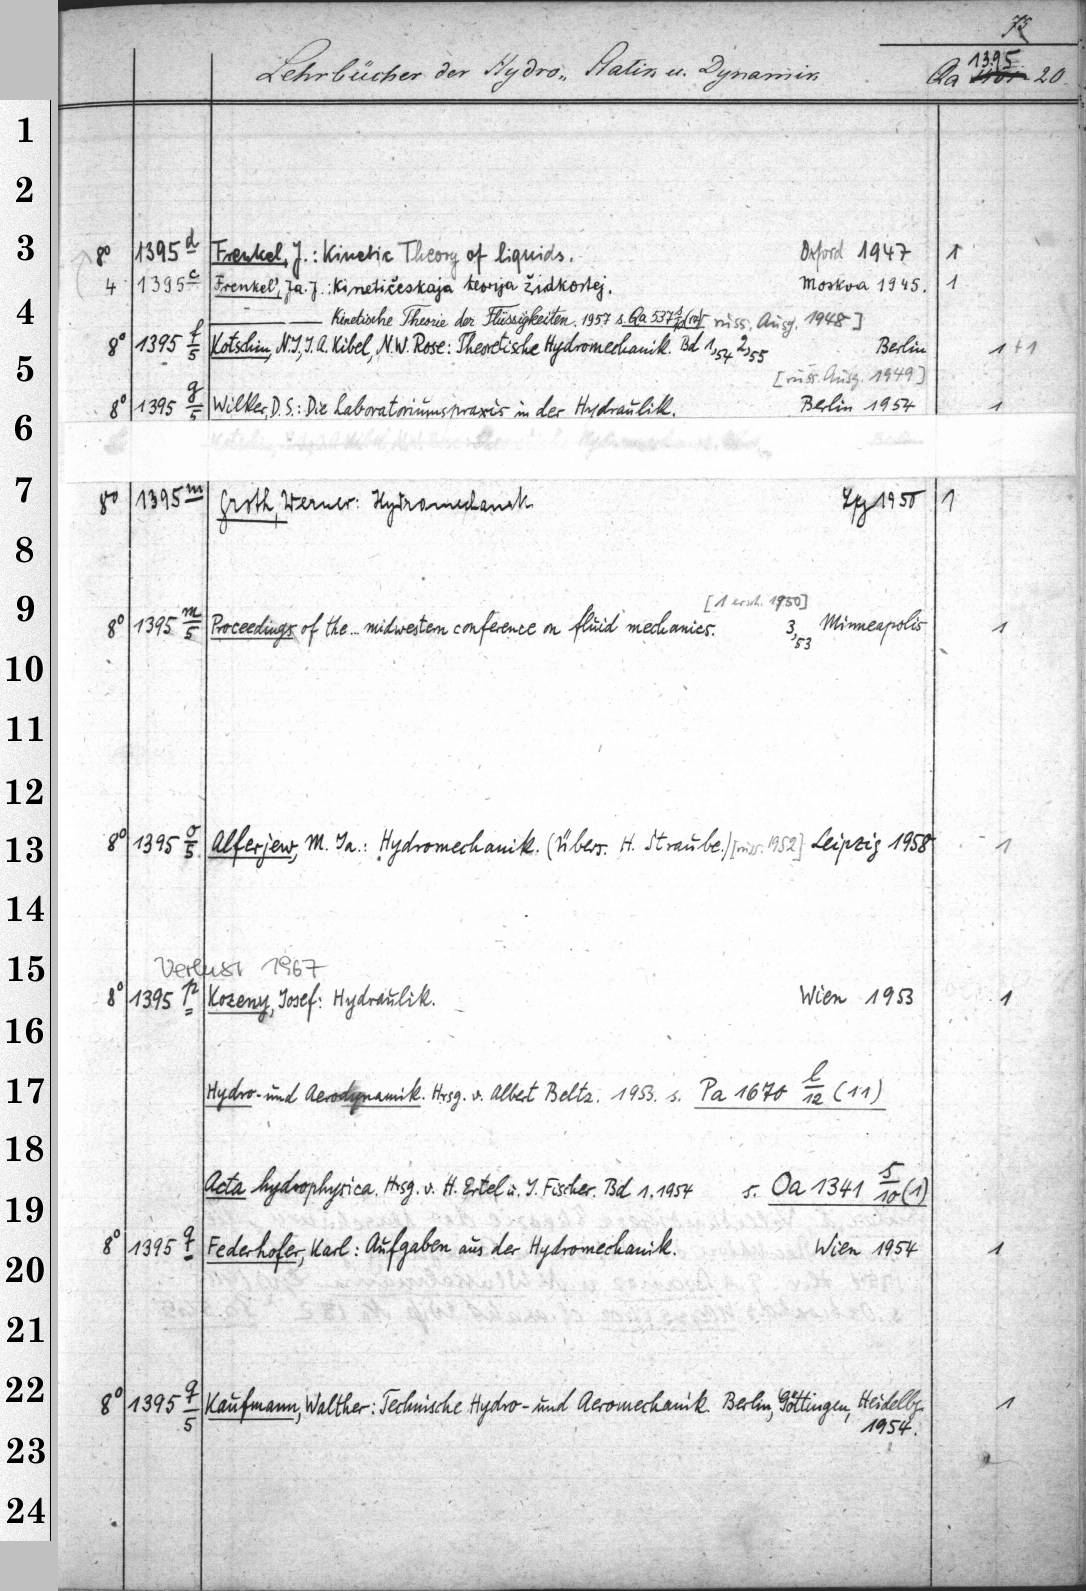 73
Lehrbücher der Hydro„ Statik u. Dynamik Qa 1395 20
1
2
3 8° 1395 d Frenkel, J.: Kinetic Theory of liquids. Oxford 1947 1
4 1395 c Frenkel', Ja. J.: Kinetičeskaja teorija židkostej. Moskva 1945. 1
4 Kinetische Theorie der Flüssigkeiten. 1957 s. Qa 537 russ. Ausg. 1948]
8° 1395 f/5 Kotschin, N.J., I.A. Kibel, N.W. Rose: Theoretische Hydromechanik. Bd 1,54 2,55 Berlin 1+1
5 [russ. Ausg. 1949]
8° 1395 g/5 Wilker, D.S.: Die Laboratoriumspraxis in der Hydraulik. Berlin 1954 1
6
7 8° 1395 m Groth, Werner: Hydromechanik Lpz 1950 1
8
9 [1 ersch. 1950]
8° 1395 m/5 Proceedings of the... midwestern conference on fluid mechanics. 3,53 Minneapolis 1
10
11
12
13 8° 1395 o/5 Alferjew, M. Ja.: Hydromechanik. (Übers. H. Straube.) [russ. 1952] Leipzig 1958 1
14
15 Verlust 1967
8° 1395 p Kozeny, Josef: Hydraulik. Wien 1953 1
16
17 Hydro- und Aerodynamik. Hrsg. v. Albert Beltz. 1953. s. Pa 1670 l/12 (11)
18
Acta hydrophysica. Hrsg. v. H. Ertel u. J. Fischer. Bd 1.1954 s. Oa 1341 5/10 (1)
19
8° 1395 q Federhofer, Karl: Aufgaben aus der Hydromechanik. Wien 1954 1
20
21
22 8° 1395 q/5 Kaufmann, Walther: Technische Hydro- und Aeromechanik. Berlin, Göttingen, Heidelbg. 1
1954.
23
24